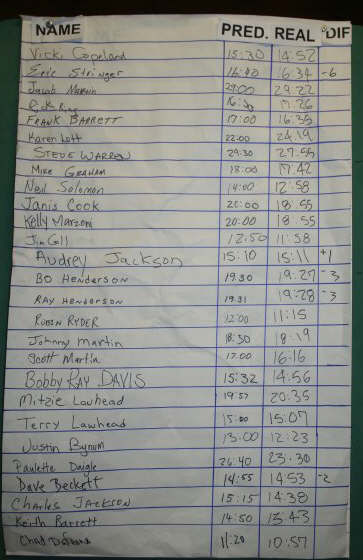 NAME PRED. REAL DIF
Vicki Copeland 15:30 14:52
Eric Stringer 16:40 16 34 -6
Jacob 29:00 29:22
Rick 17:26
FRANK BARRETT 17:00 16:35
Karen Lott 22:00 24:19
STEVE WARREN 29:30 27:55
MIKE GRAHAM 18:00 17:42
Neil Solomon 14:00 12:58
Janis Cook 20:00 18:55
Kelly 20:00 18 55
Jim Gill 12:50 11:58
Audrey Jackson 15:10 15:11 +1
BO HENDERSON 19:30 19:27 -3
RAY HENDERSON 19:31 19:28 -3
ROBIN RYDER 12:00 11:15
Johnny Martin 18:30 18:19
Scott Martin 17:00 16:16
Bobby RAY DAVIS 15:32 14:56
Mitzie Lawhead 19:57 20:35
Terry Lawhead 15:00 15:07
Justin Bynum 13:00 12:23
Paulette Daigle 26:40 23:30
Dave Beckett 14:55 14:53 -2
CHARLES JACKSON 15:15 14:38
Keith Barrett 14:50 13:43
Chad 11:20 10:57